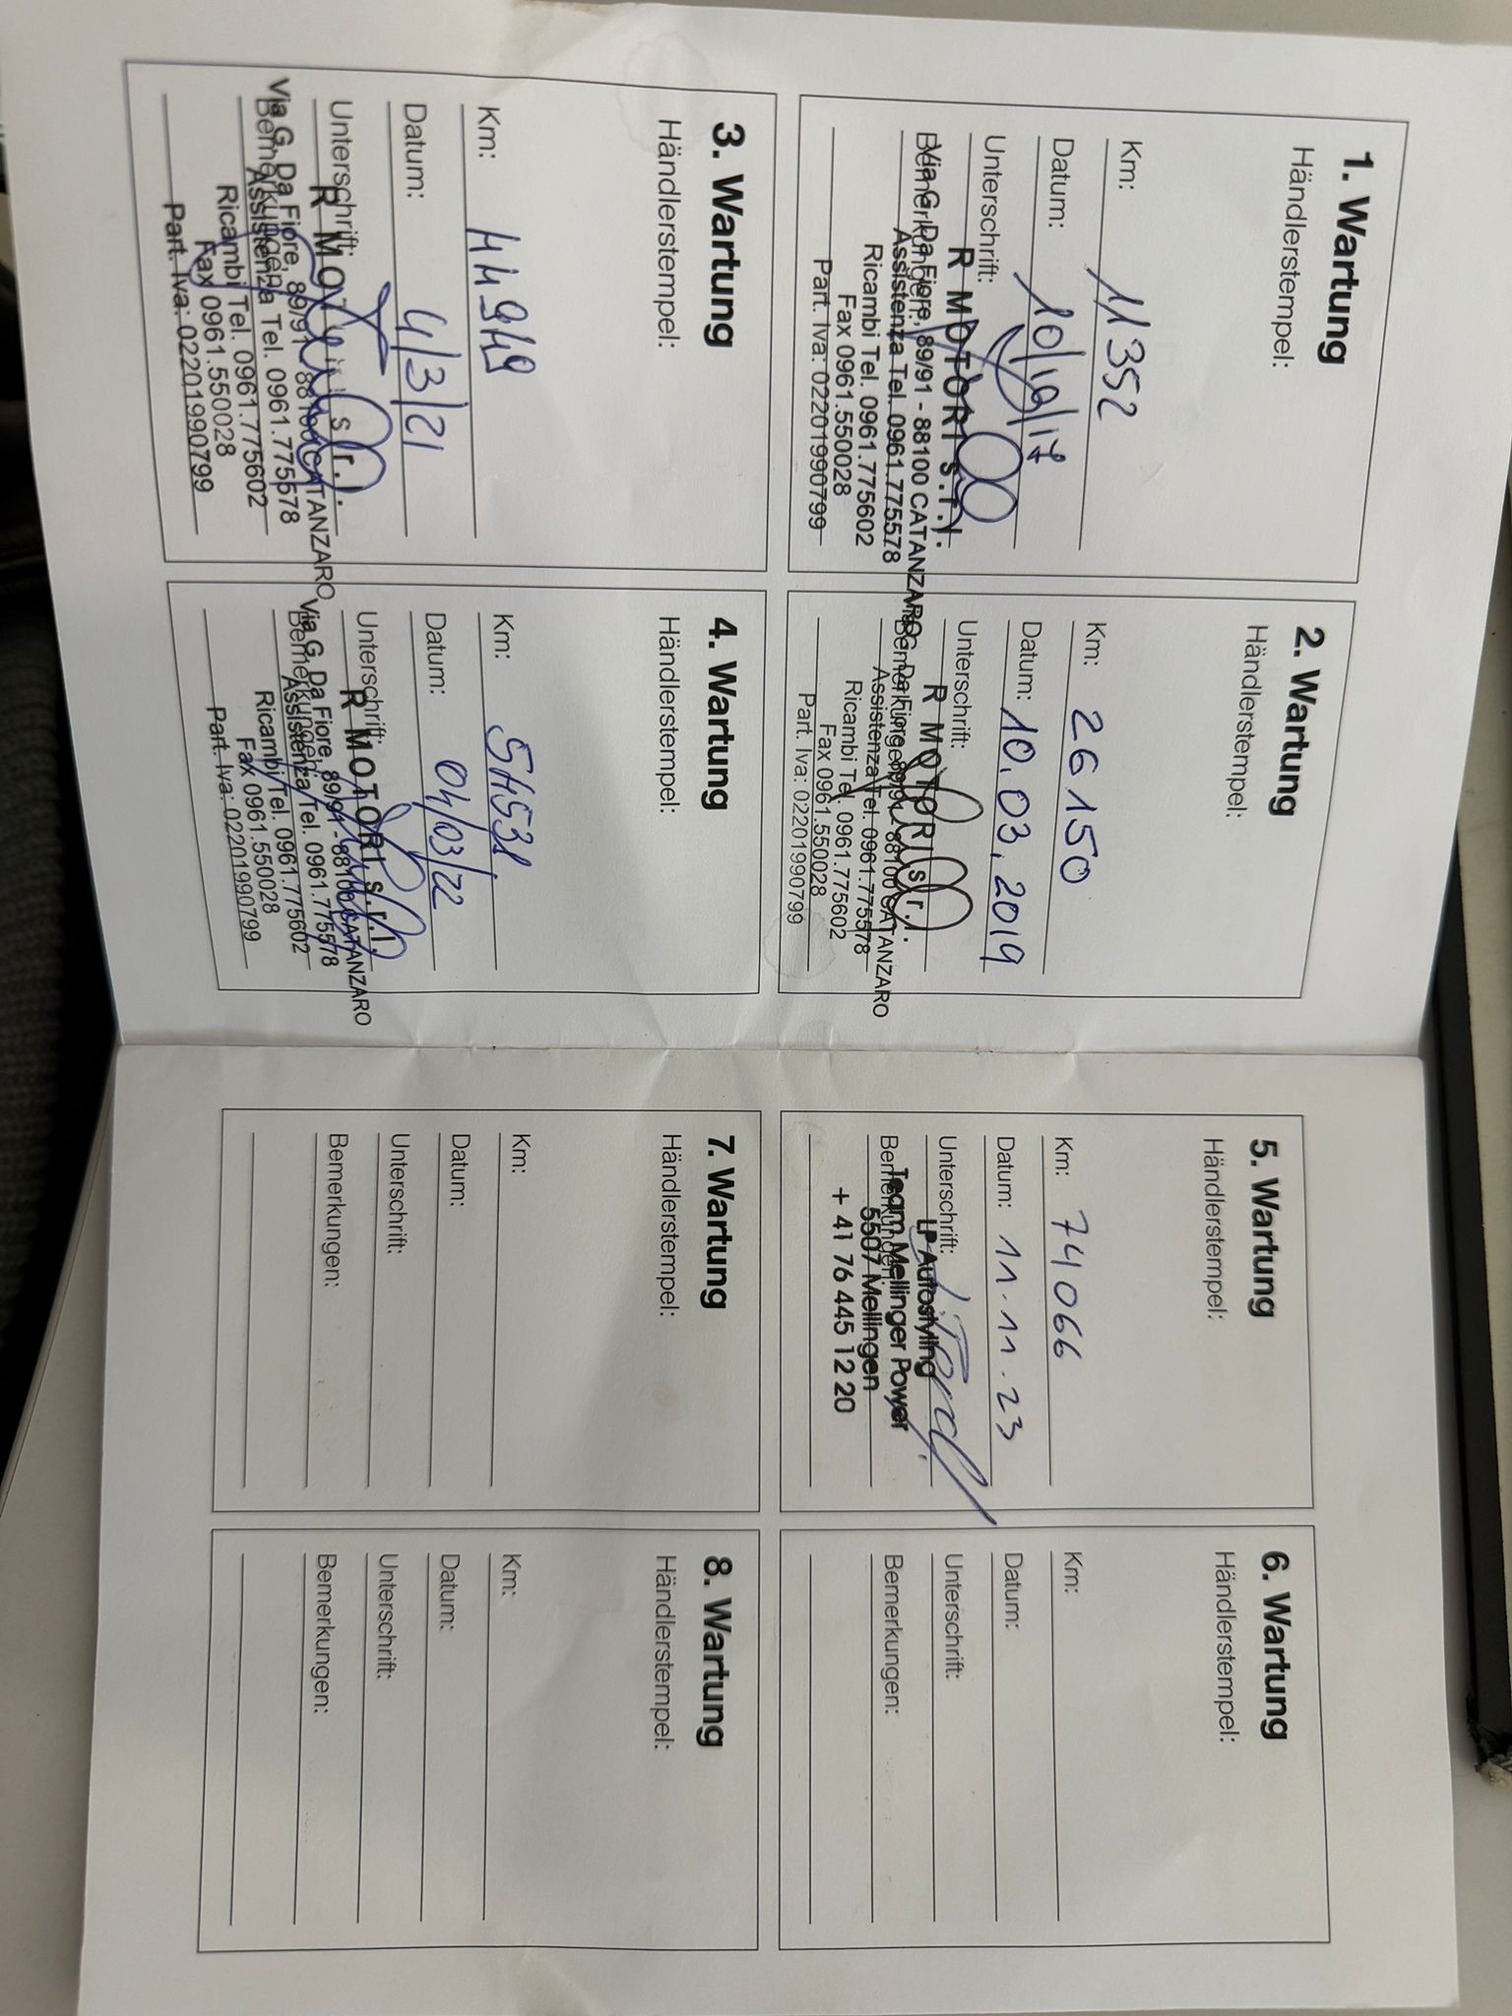 1. Wartung
Händlerstempel:
Km: 11352
Datum: 10/10/17
Unterschrift:
R MOTORI s.r.l.
Bemerkungen:
Via G. Da Fiore, 89/91 - 88100 CATANZARO
Assistenza Tel. 0961.775578
Ricambi Tel. 0961.775602
Fax 0961.550028
Part. Iva: 02201990799
2. Wartung
Händlerstempel:
Km: 26150
Datum: 10.03.2019
Unterschrift:
R MOTORI s.r.l.
Bemerkungen:
Via G. Da Fiore, 89/91 - 88100 CATANZARO
Assistenza Tel. 0961.775578
Ricambi Tel. 0961.775602
Fax 0961.550028
Part. Iva: 02201990799
3. Wartung
Händlerstempel:
Km: 44949
Datum: 4/3/21
Unterschrift:
R MOTORI s.r.l.
Bemerkungen:
Via G. Da Fiore, 89/91 - 88100 CATANZARO
Assistenza Tel. 0961.775578
Ricambi Tel. 0961.775602
Fax 0961.550028
Part. Iva: 02201990799
4. Wartung
Händlerstempel:
Km:
Datum: 04/03/22
Unterschrift:
R MOTORI s.r.l.
Bemerkungen:
Via G. Da Fiore, 89/91 - 88100 CATANZARO
Assistenza Tel. 0961.775578
Ricambi Tel. 0961.775602
Fax 0961.550028
Part. Iva: 02201990799
5. Wartung
Händlerstempel:
Km: 74066
Datum: 11.11.23
Unterschrift:
LP Autostyling
Bemerkungen:
Team Mellinger Power
5507 Mellingen
+ 41 76 445 12 20
6. Wartung
Händlerstempel:
Km:
Datum:
Unterschrift:
Bemerkungen:
7. Wartung
Händlerstempel:
Km:
Datum:
Unterschrift:
Bemerkungen:
8. Wartung
Händlerstempel:
Km:
Datum:
Unterschrift:
Bemerkungen: